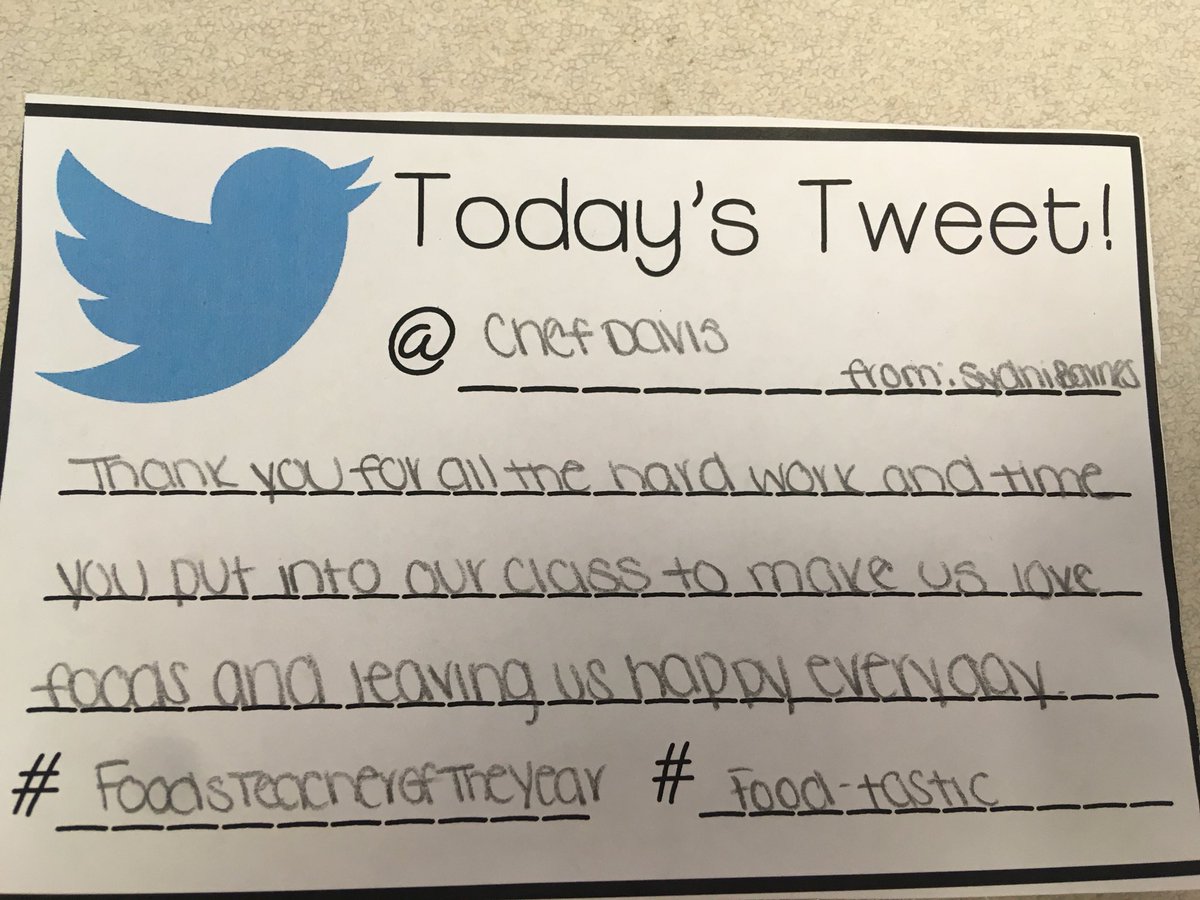 Today's Tweet!
@ Chef Davis
from: Sydni Barnes
Thank you for all the hard work and time
you put into our class to make us love
foods and leaving us happy everyday
# FoodsTeacherofTheYear # Food-tastic